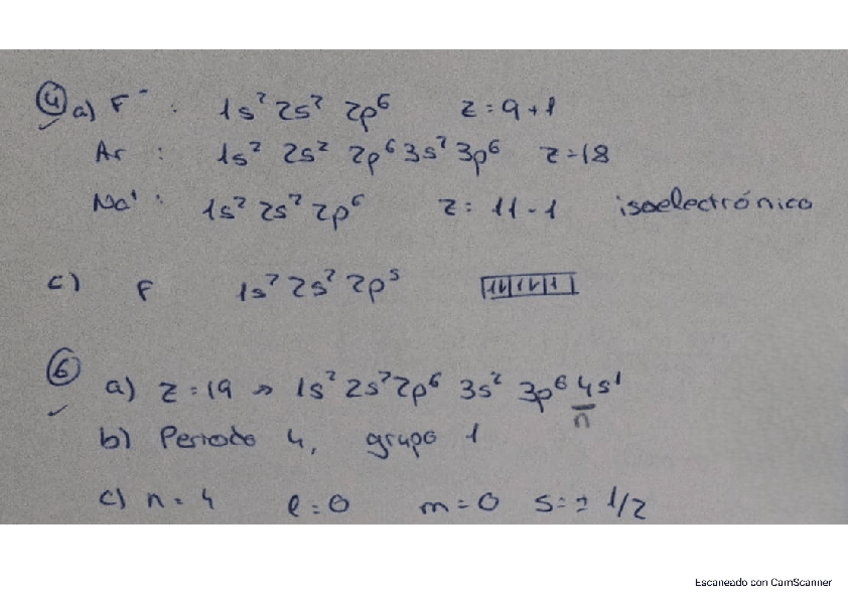 4 a) F⁻ : 1s² 2s² 2p⁶ z = 9 + 1
Ar : 1s² 2s² 2p⁶ 3s² 3p⁶ z = 18
Na⁺ : 1s² 2s² 2p⁶ z = 11 - 1 isoelectrónico
c) F 1s² 2s² 2p⁵
6 a) z = 19 => 1s² 2s² 2p⁶ 3s² 3p⁶ 4s¹
n
b) Periodo 4, grupo 1
c) n = 4 l = 0 m = 0 s = ± 1/2
Escaneado con CamScanner